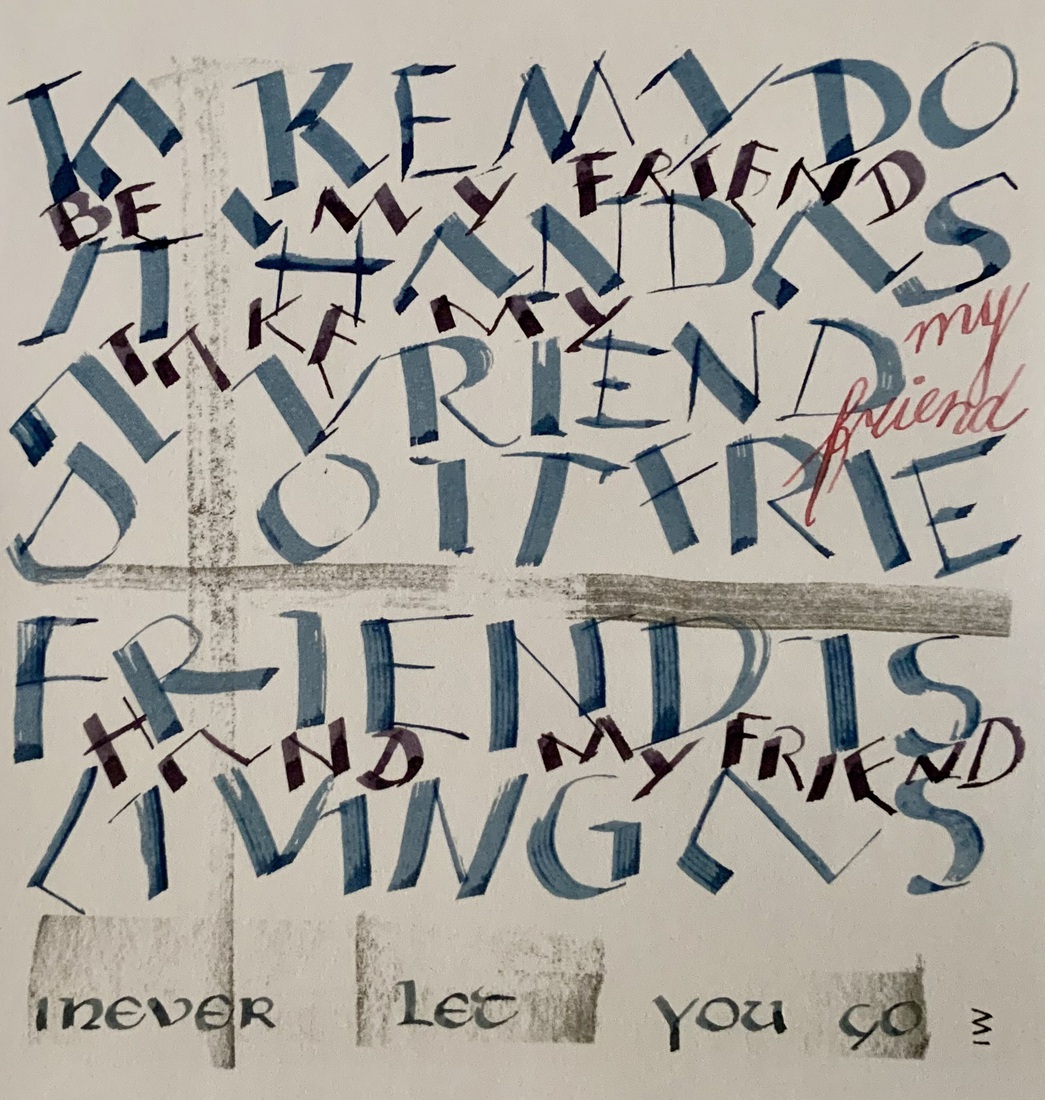 TAKE MY DO
BE MY FRIEND
HAND AS
TAKE MY
my
VRIEND
friend
FRIEND IS
HAND MY FRIEND
LIVING AS
INEVER LET YOU GO
IW